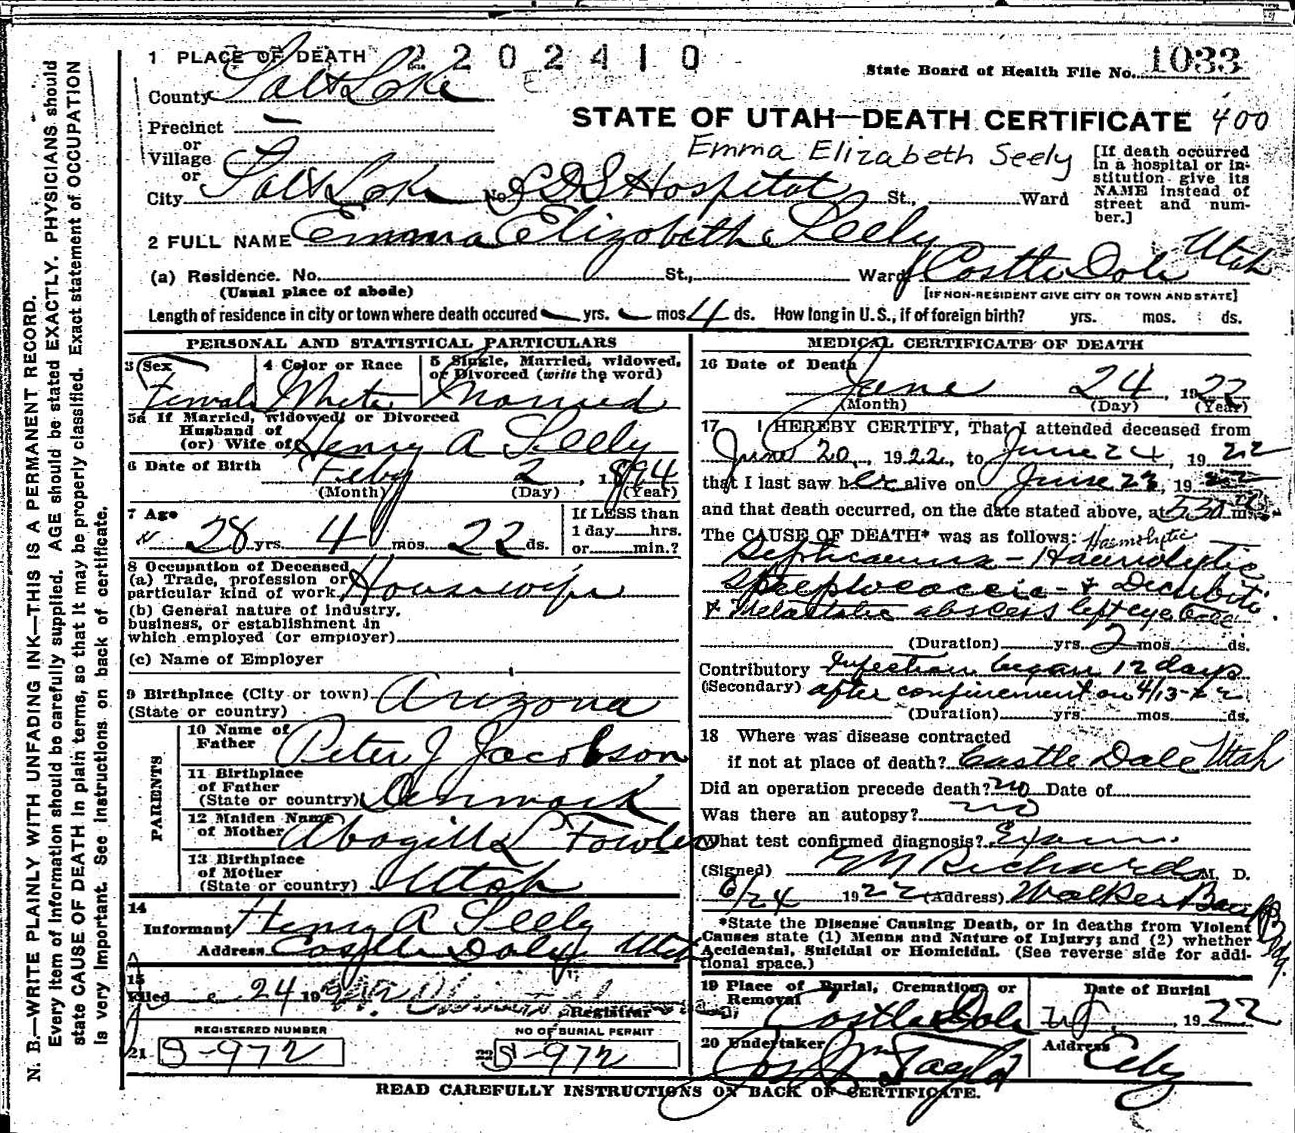 1 PLACE OF DEATH 2202410 1033
State Board of Health File No.
County Salt Lake
STATE OF UTAH—DEATH CERTIFICATE 400
Precinct —
or
Village
or
Emma Elizabeth Seely
[If death occurred
in a hospital or in-
stitution give its
NAME instead of
street and num-
ber.]
City Salt Lake No. LDS Hospital St., Ward
2 FULL NAME Emma Elizabeth Seely
(a) Residence. No. St., Ward Castle Dale Utah
(Usual place of abode) [IF NON-RESIDENT GIVE CITY OR TOWN AND STATE]
Length of residence in city or town where death occured — yrs. — mos 4 ds. How long in U.S., if of foreign birth? yrs. mos. ds.
PERSONAL AND STATISTICAL PARTICULARS
3 Sex
Female
4 Color or Race
White
5 Single, Married, widowed,
or Divorced (write the word)
Married
5a If Married, widowed, or Divorced
Husband of
(or) Wife of Henry A Seely
6 Date of Birth Feby 2, 1894
(Month) (Day) (Year)
7 Age
28 yrs. 4 mos. 22 ds.
If LESS than
1 day hrs.
or min.?
8 Occupation of Deceased
(a) Trade, profession or
particular kind of work Housewife
(b) General nature of industry,
business, or establishment in
which employed (or employer)
(c) Name of Employer
9 Birthplace (City or town) Arizona
(State or country)
PARENTS
10 Name of
Father Peter J Jacobson
11 Birthplace
of Father
(State or country) Denmark
12 Maiden Name
of Mother Abogill L Fowler
13 Birthplace
of Mother
(State or country) Utah
14
Informant Henry A Seely
Address Castle Daly Utah
15
Filed June 24 19
Registrar
REGISTERED NUMBER
21 S-972
NO OF BURIAL PERMIT
22 S-972
MEDICAL CERTIFICATE OF DEATH
16 Date of Death
June 24, 1922
(Month) (Day) (Year)
17 I HEREBY CERTIFY, That I attended deceased from
June 20, 1922, to June 24, 1922
that I last saw her alive on June 23, 1922
and that death occurred, on the date stated above, at 530 m.
The CAUSE OF DEATH* was as follows: Haemolytic
Septicaemia - Haemolytic
Streptococcic - & Decubiti
& Metastatic abscess left eye
(Duration) yrs. 2 mos. ds.
Contributory Infection began 12 days
(Secondary) after confinement on 4/13-22
(Duration) yrs. mos. ds.
18 Where was disease contracted
if not at place of death? Castle Dale Utah
Did an operation precede death? no Date of
Was there an autopsy? no
What test confirmed diagnosis? Exam.
(Signed) G N Richards M. D.
6/24 1922 (Address) Walker Bank Bldg.
*State the Disease Causing Death, or in deaths from Violent
Causes state (1) Means and Nature of Injury; and (2) whether
Accidental, Suicidal or Homicidal. (See reverse side for addi-
tional space.)
19 Place of Burial, Cremation, or
Removal
Castle Dale
Date of Burial
1922
20 Undertaker
Jos Wm Taylor
Address City
READ CAREFULLY INSTRUCTIONS ON BACK OF CERTIFICATE.
N. B.—WRITE PLAINLY WITH UNFADING INK—THIS IS A PERMANENT RECORD.
Every item of information should be carefully supplied. AGE should be stated EXACTLY. PHYSICIANS should
state CAUSE OF DEATH in plain terms, so that it may be properly classified. Exact statement of OCCUPATION
is very important. See instructions on back of certificate.